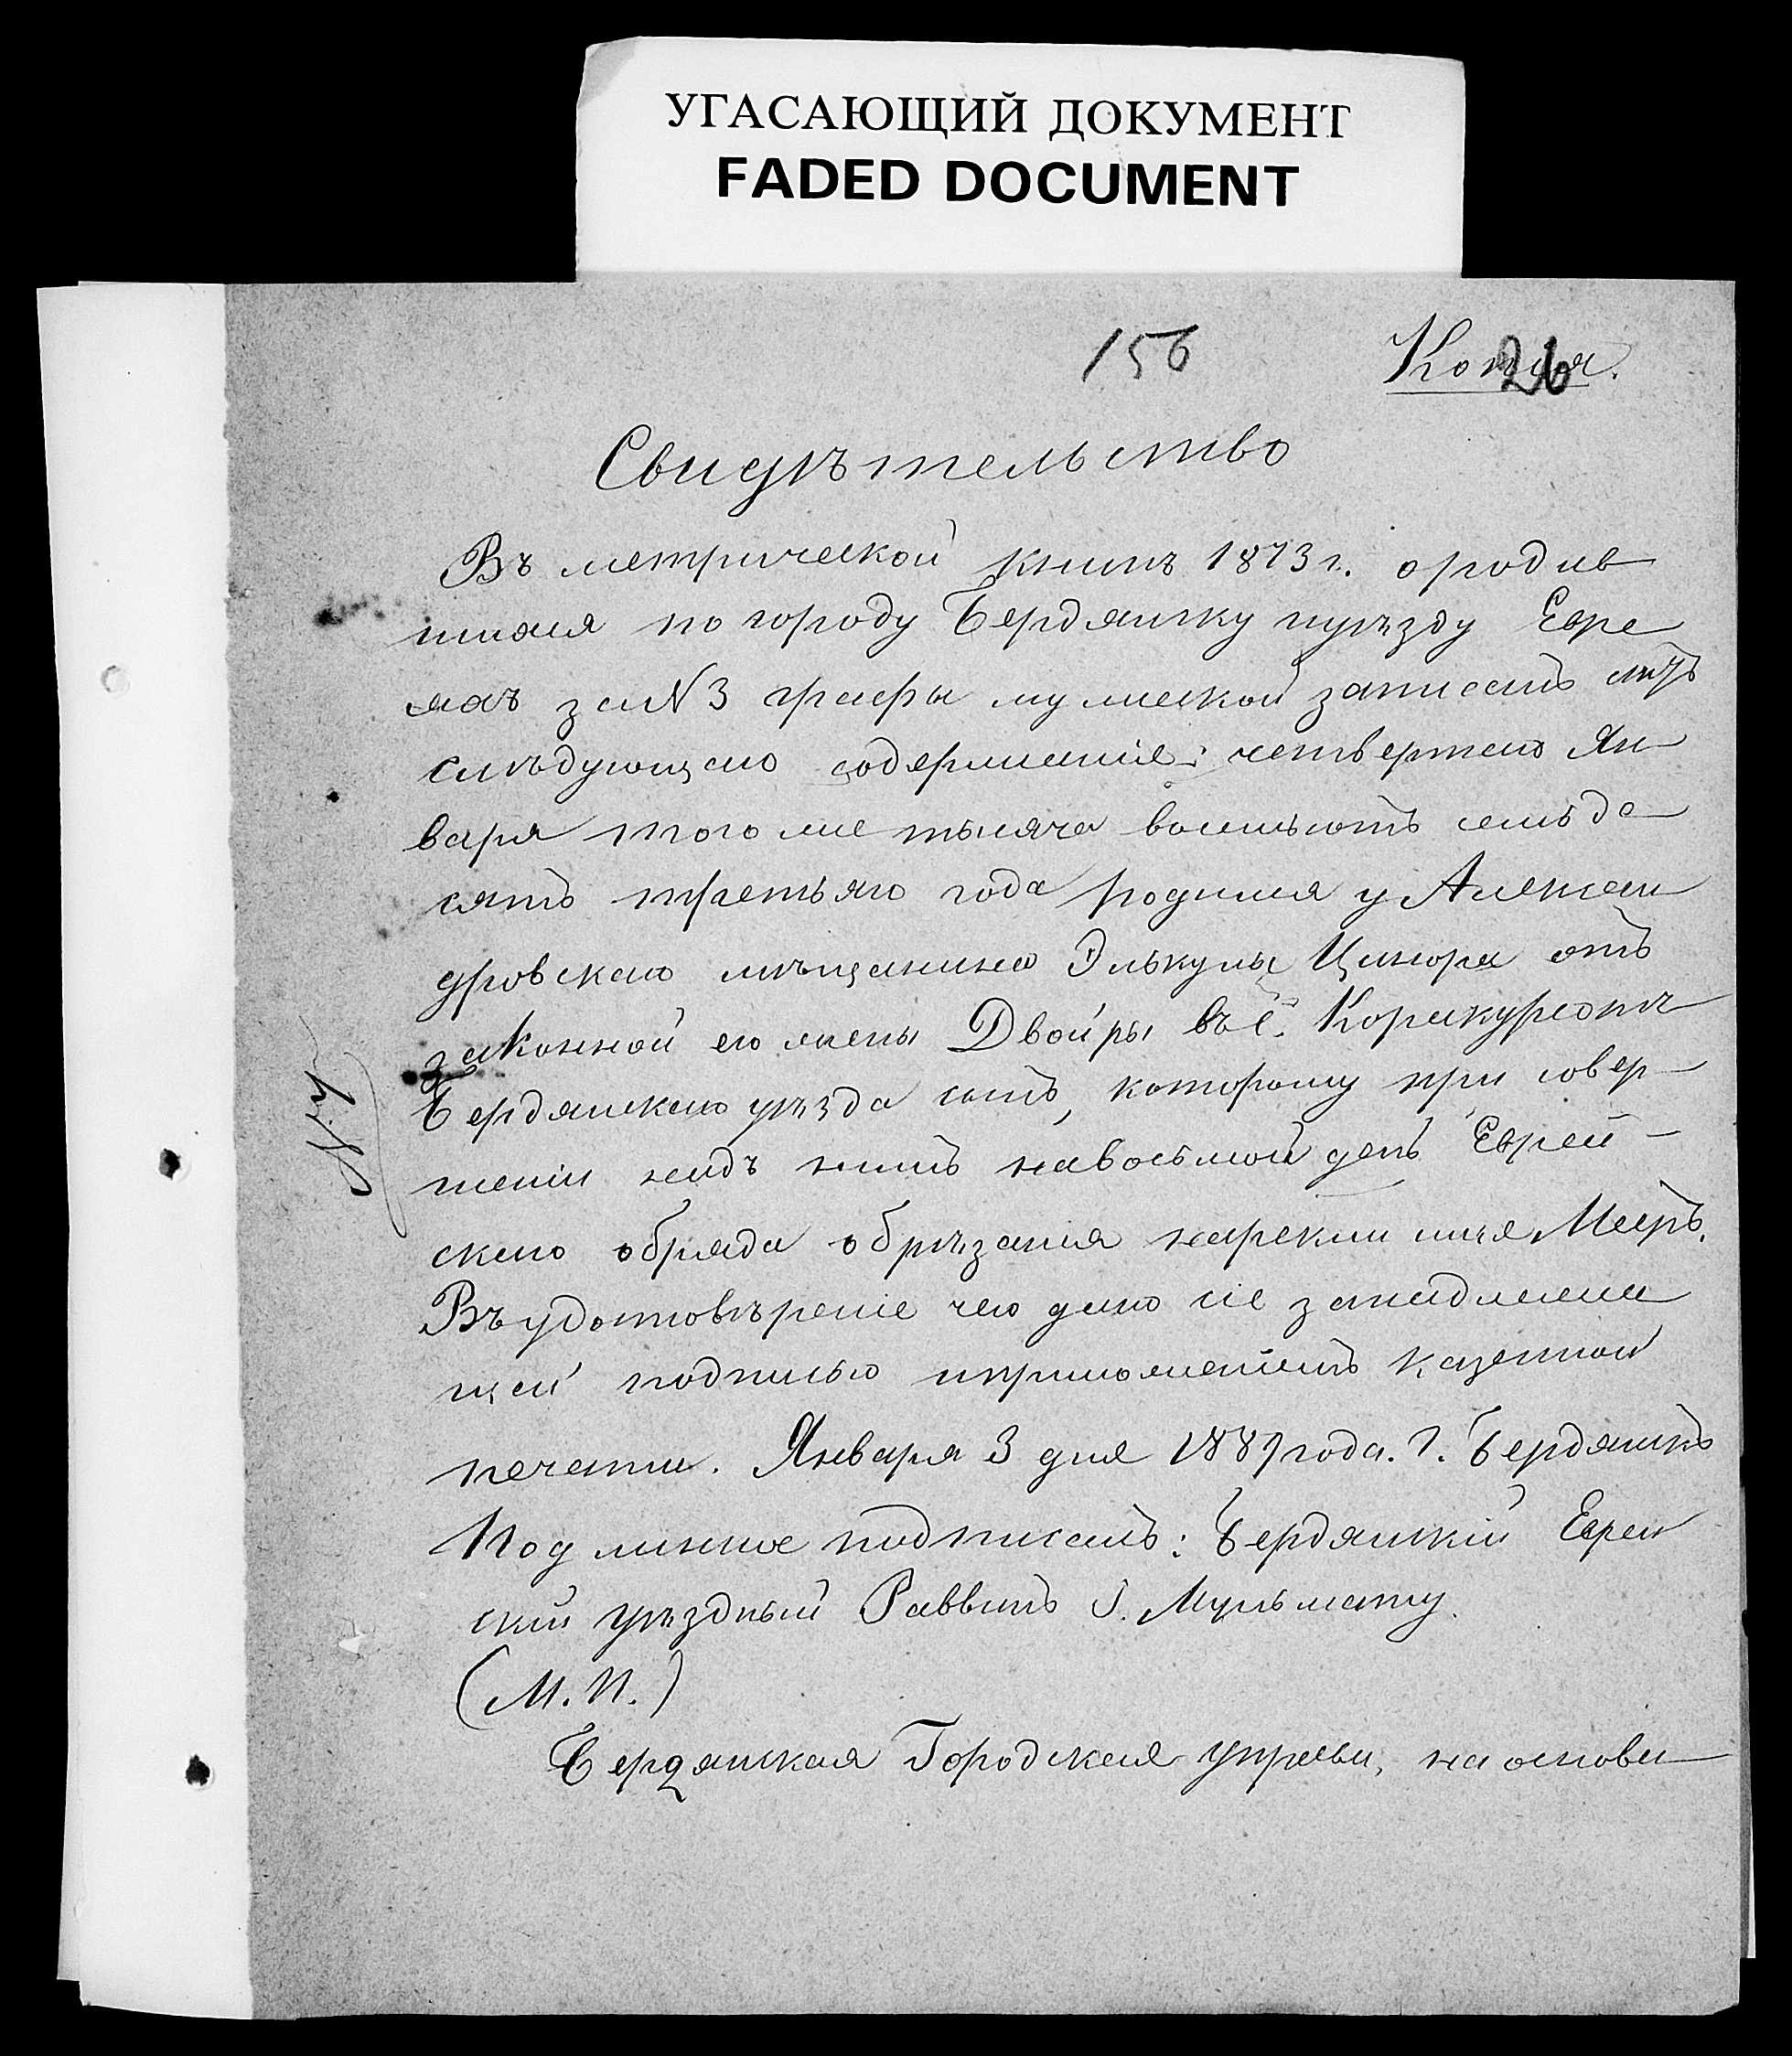 УГАСАЮЩИЙ ДОКУМЕНТ
FADED DOCUMENT
156
Копія.
26
Свидѣтельство
Въ метрической книгѣ 1873 г. о родив
шихся по городу Бердянску и уѣзду Евре
яхъ за № 3 графы мужеской записанъ актъ
слѣдующаго содержанія: четвертаго Ян
варя того же тысяча восемьсотъ семьде
сятъ третьяго года родился у Алексан
дровскаго мѣщанина Элькуны Цинора отъ
законной его жены Двойры въ с.
Бердянскаго уѣзда сынъ, которому при совер-
шеніи надъ нимъ на восьмой день Еврей-
скаго обряда обрѣзанія нарекли имя Мееръ.
Въ удостовѣреніе чего дано сіе за надлежа
щей подписью и приложеніемъ казенной
печати. Января 3 дня 1889 года. Г. Бердянскъ
Подлинное подписалъ: Бердянскій Еврей
скій уѣздный Раввинъ
(М.П.)
Бердянская Городская Управа, на основа